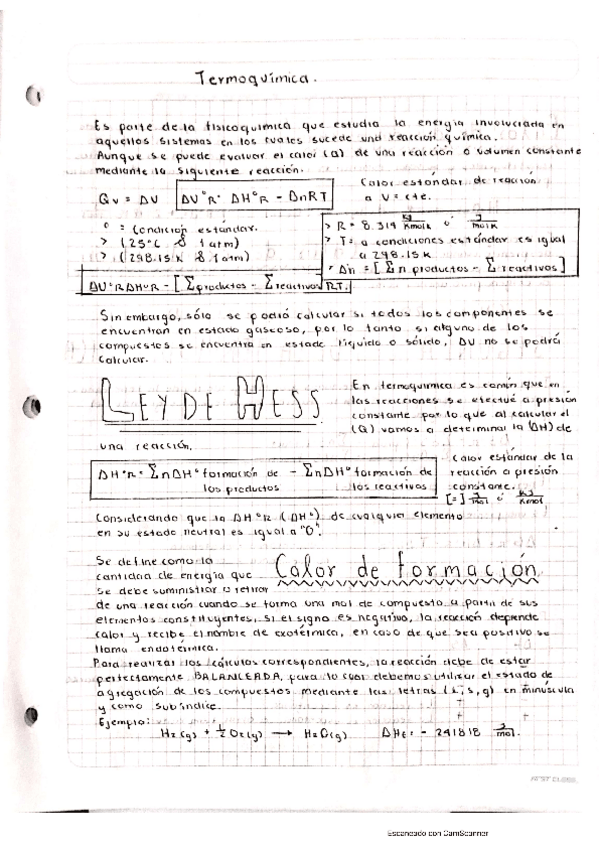 Termoquímica.
Es parte de la fisicoquímica que estudia la energía involucrada en
aquellos sistemas en los cuales sucede una reacción química.
Aunque se puede evaluar el calor (Q) de una reacción a volumen constante
mediante la siguiente reacción.
Qv = ΔU ΔU°R = ΔH°R - ΔnRT Calor estándar de reacción
a V = cte.
° = Condición estándar.
> (25°C & 1 atm)
> (298.15 K & 1 atm)
> R = 8.314 KJ/Kmol K ó J/mol K
> T = a condiciones estándar es igual
a 298.15 K
> Δn = [Σn productos - Σ reactivos]
ΔU°R ΔH°R - [Σ productos - Σ reactivos] RT.
Sin embargo, sólo se podrá calcular si todos los componentes se
encuentran en estado gaseoso, por lo tanto si alguno de los
compuestos se encuentra en estado líquido o sólido, ΔU no se podrá
calcular.
LEY DE HESS
En termoquímica es común que en
las reacciones se efectué a presión
constante por lo que al calcular el
(Q) vamos a determinar la (ΔH) de
una reacción.
ΔH°R = ΣnΔH° formación de - ΣnΔH° formación de
los productos los reactivos
Calor estándar de la
reacción a presión
constante.
[=] J/mol ó KJ/Kmol
Considerando que la ΔH°R (ΔH°) de cualquier elemento
en su estado neutral es igual a "0".
Calor de formación
Se define como la
cantidad de energía que
se debe suministrar o retirar
de una reacción cuando se forma una mol de compuesto a partir de sus
elementos constituyentes, si el signo es negativo, la reacción
calor y recibe el nombre de exotérmica, en caso de que sea positivo se
llama endotérmica.
Para realizar los cálculos correspondientes, la reacción debe de estar
perfectamente BALANCEADA, para lo cual debemos utilizar el estado de
agregación de los compuestos mediante las letras (L, s, g) en minúscula
y como subíndice.
Ejemplo:
H2(g) + 1/2 O2(g) → H2O(g) ΔHf = - 241818 J/mol.
Escaneado con CamScanner